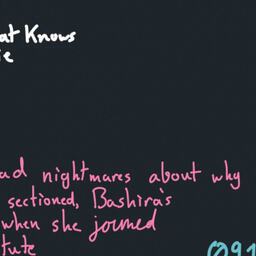 at Knows
ie
ad nightmares about why
sectioned, Bashira's
when she joined
tute
@91